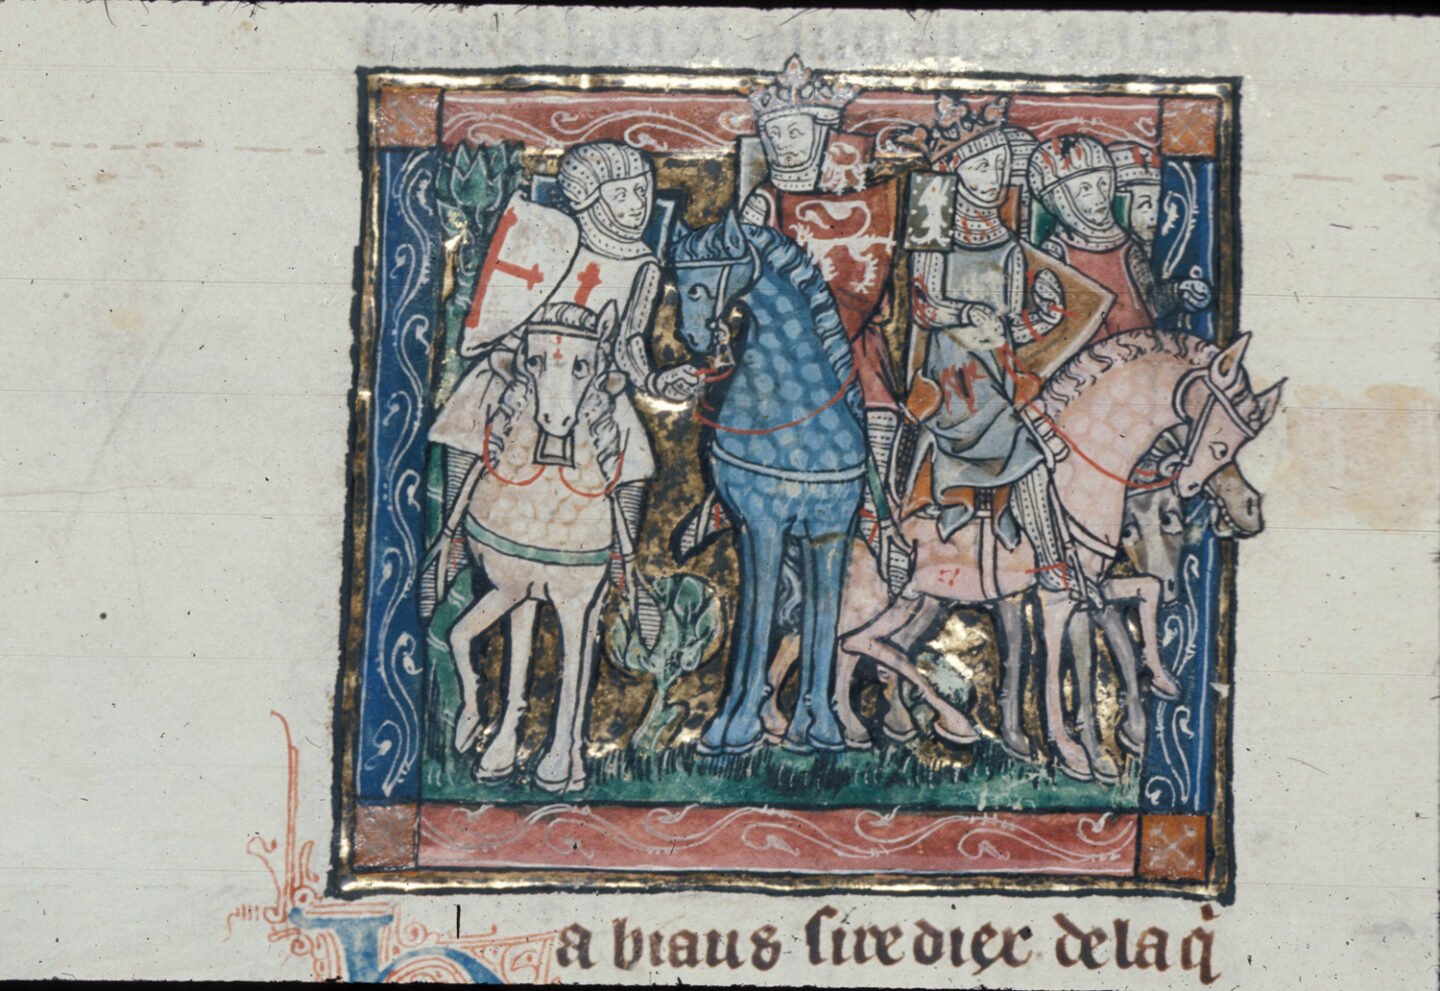 ha biaus sire diex de la q̃